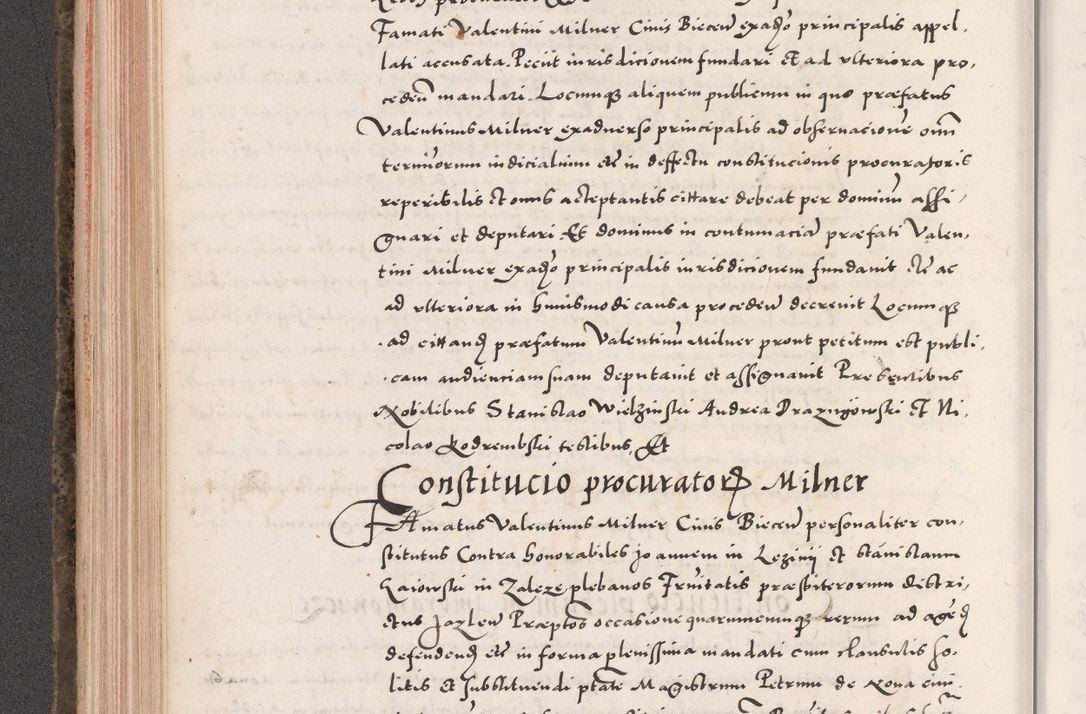 Famati Valentini Milner Civis Biecen̄ ex adv̄so principalis appel,
lati accusata. Peciit iurisdicionem fundari Et ad vlteriora pro,
ceden̄ mandari. Locumqꝫ aliquem publicum in quo præfatus
Valentinus Milner ex adverso principalis ad observacione om̄
terminorum iudicialium etc̄ in deffectu constitucionis procuratoris
reperibilis et onus acceptantis cittare debeat per dominū assi,
gnari et deputari. Et dominus in contumaciā præfati Valen,
tini Milner ex adv̄so principalis iurisdicionem fundavit etc̄ ac
ad vlteriora in huiusmodi causa proceden̄ decrevit Locumqꝫ
ad cittand præfatum Valentinū Milner prout petitum est publi,
cam audienciam suam deputavit et assignavit Presentibus
Nobilibus Stanislao Wielzinski Andrea Drazngowski Et Ni,
colao Kodrembski testibus Et
Constitucio procurator Milner
FAmatus Valentinus Milner Civis Biecen̄ personaliter con,
stitutus Contra honorabiles Joannem in Lezinij et Stanislaum
Kaiowski in Zaleze plebanos Frn̄itatis præsbiterorum districtus
Jazlen̄ Præptos occasione quarumcumqꝫ rerum ad agēd
defendend etc̄ in forma plenissima mandati cum clausulis so,
litis Et substituendi ptate Magistrum Petrum de Nova civi